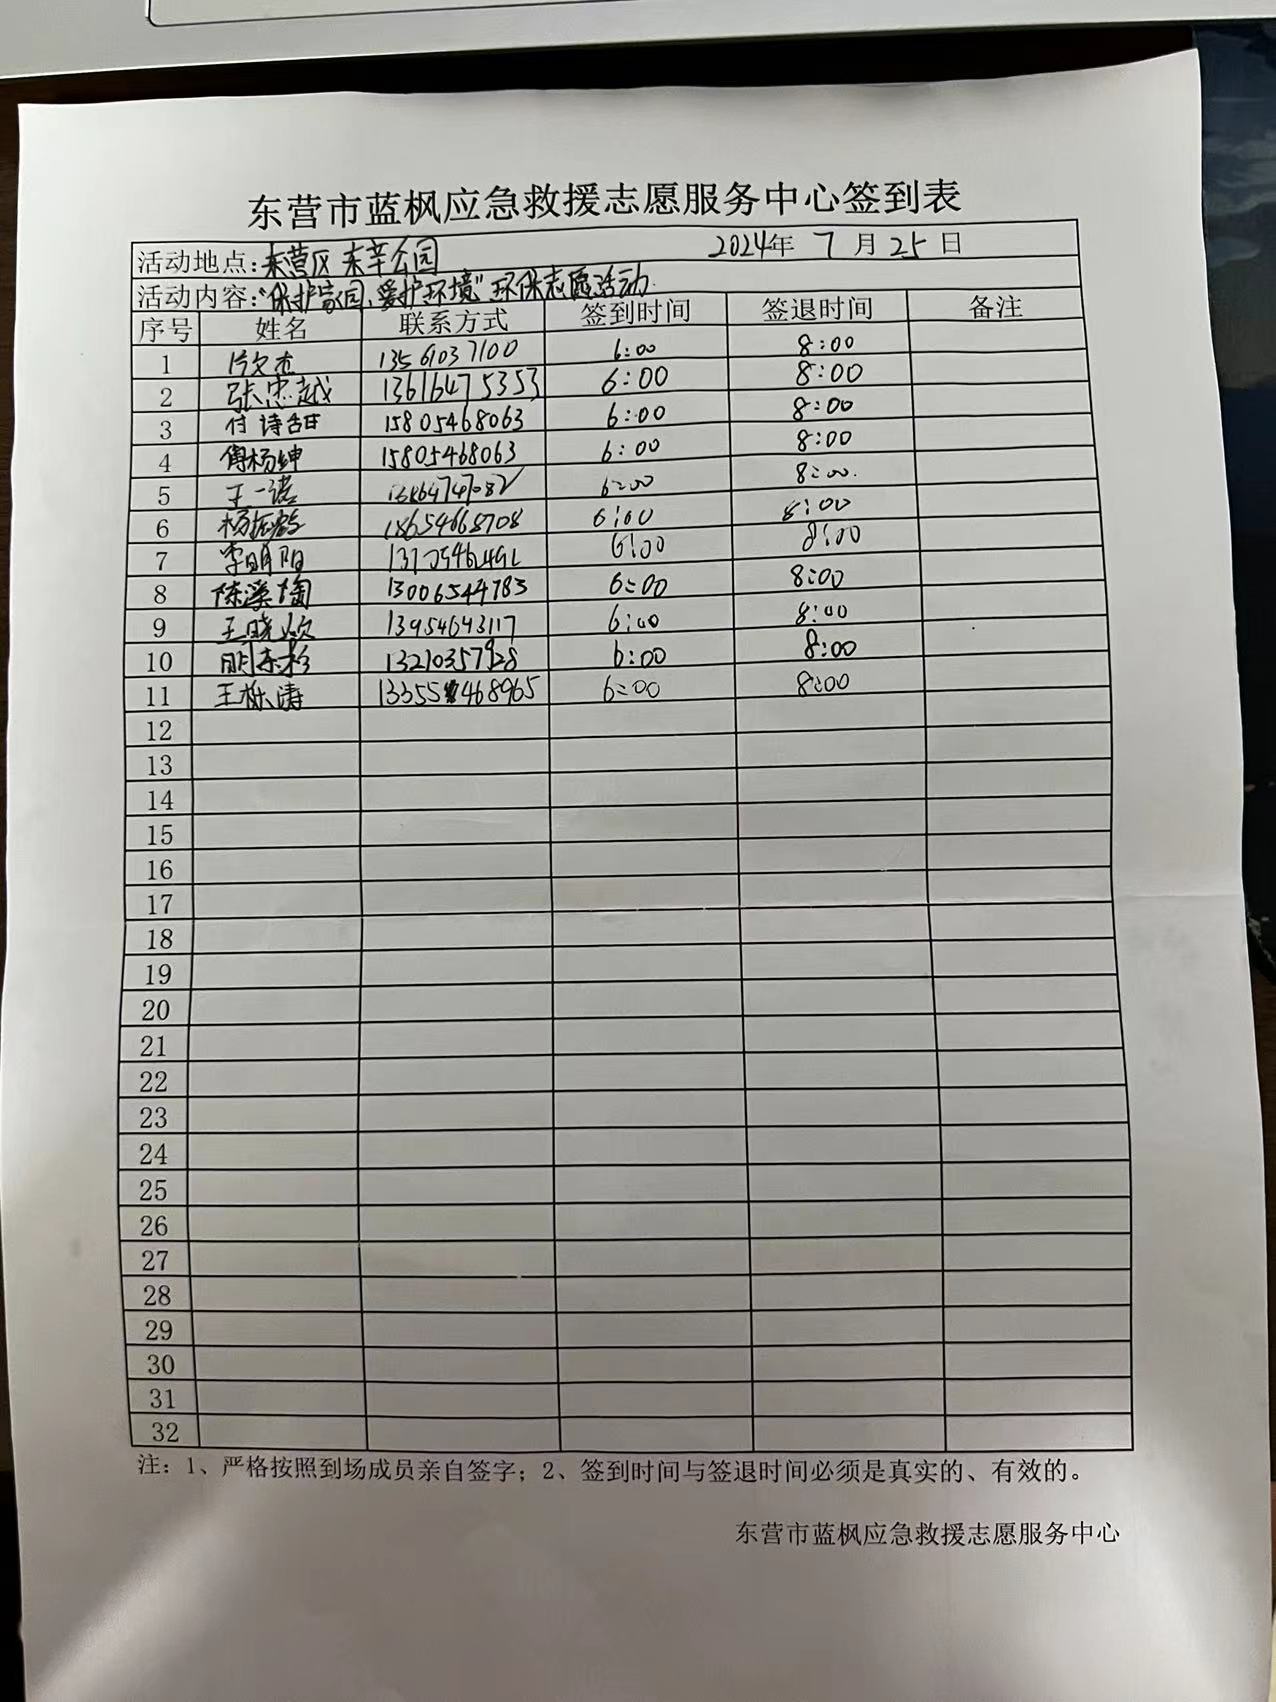 东营市蓝枫应急救援志愿服务中心签到表
活动地点:东营区 东辛公园 2024年 7 月 25 日
活动内容:“保护家园、爱护环境”环保志愿活动
序号 姓名 联系方式 签到时间 签退时间 备注
1 13561037100 6:00 8:00
2 张忠越 13616475353 6:00 8:00
3 付诗甜 15805468063 6:00 8:00
4 傅杨绅 15805468063 6:00 8:00
5 王一诺 6:00 8:00
6 18654668708 6:00 8:00
7 李明阳 6:00 8:00
8 陈溪陶 13006544783 6:00 8:00
9 王晓欢 13954643117 6:00 8:00
10 13210357928 6:00 8:00
11 王栎涛 13355468965 6:00 8:00
12
13
14
15
16
17
18
19
20
21
22
23
24
25
26
27
28
29
30
31
32
注：1、严格按照到场成员亲自签字；2、签到时间与签退时间必须是真实的、有效的。
东营市蓝枫应急救援志愿服务中心